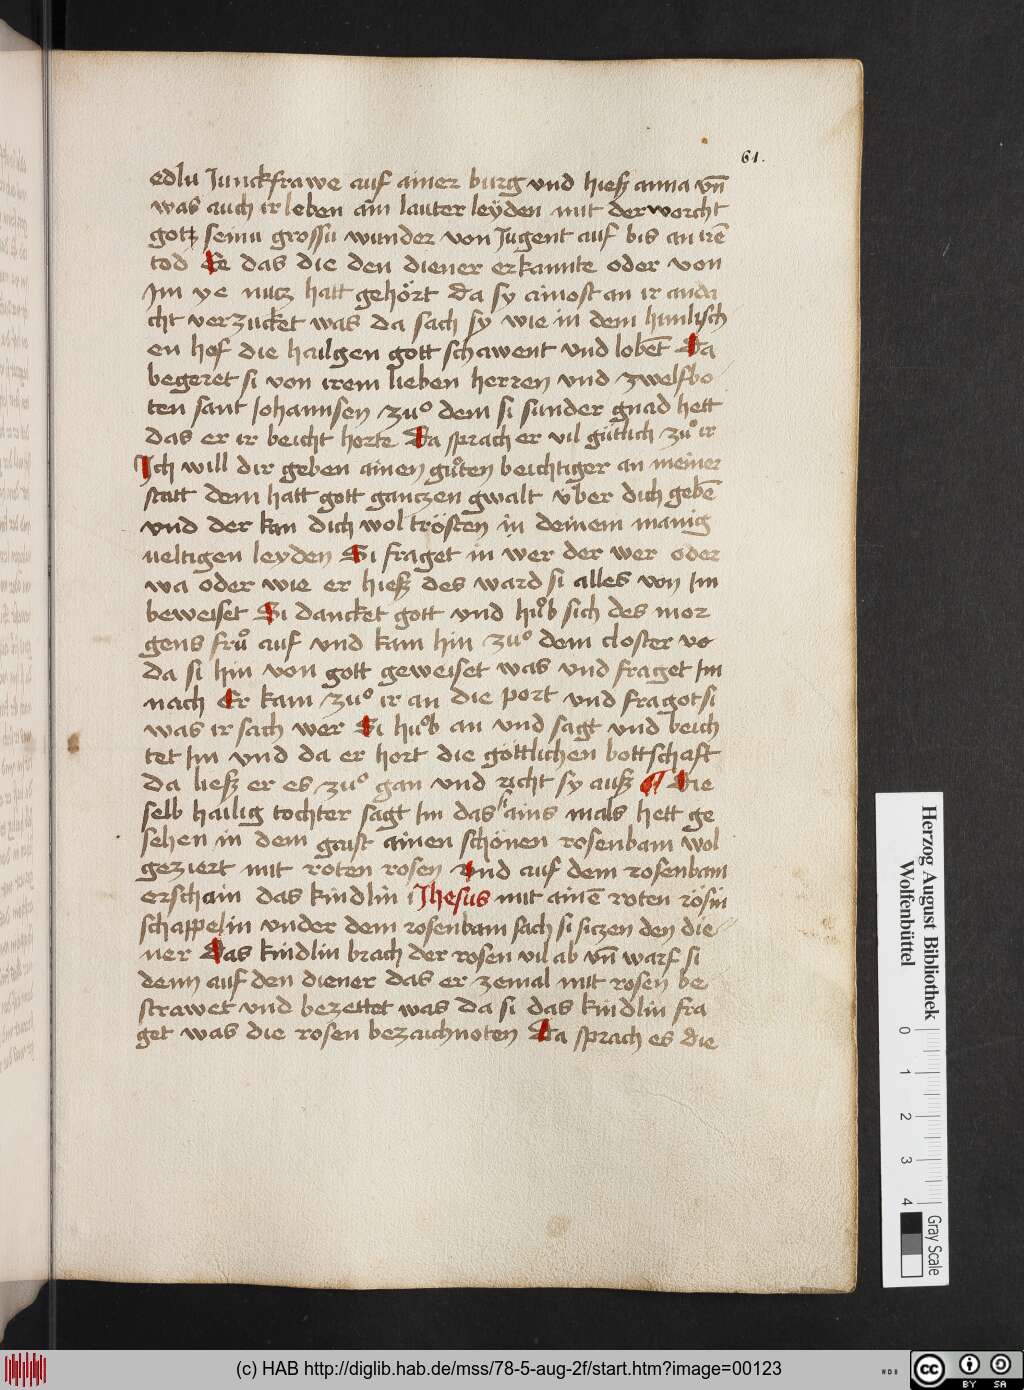 61.
edlu Junckfrawe auf ainer burg vnd hieß anna vn̄
was auch ir leben ain lauter leÿden mit der worcht
gotz seinu grossu wunder von Jugent auf bis an irē
tod Ee das die den diener erkannte oder von
Im ye nutz hatt gehört da sy aimost an ir anda
cht verzucket was da sach sy wie in dem himlisch
en hof die hailgen gott schawent vnd lobēt Da
begeret si von irem lieben herren vnd zwelfbo
ten sant Johannsen zuͦ dem si sunder gnad hett
das er ir beicht horte Da sprach er vil gütlich zuͦ ir
Ich will dir geben ainen guͦten beichtiger an meiner
statt dem hatt gott ganczen gwalt über dich gebē
vnd der kan dich wol trösten in deinem manig
ueltigen leyden Si fraget in wer der wer oder
wa oder wie er hieß des ward si alles von Im
beweiset Si dancket gott vnd huͦb sich des mor
gens fruͦ auf vnd kam hin zuͦ dem closter vo
da si hin von gott geweiset was vnd fraget Im
nach Er kam zuͦ ir an die port vnd fragot si
was ir sach wer Si huͦb an vnd sagt vnd beich
tet Im vnd da er hort die göttlichen bottschaft
da ließ er es zuͦ gan vnd richt sy auß ¶ Die
selb hailig tochter sagt Im das si ains mals hett ge
sehen in dem gaist ainen schönen rosenbam wol
geziert mit roten rosen vnd auf dem rosenbam
erschain das kindlin i Jhesus mit ainē roten rösin
schappelin vnder dem rosenbam sach si siczen den die
ner Das kindlin brach der rosen vil ab vn̄ warf si
denn auf den diener das er zemal mit rosen be
strawet vnd bezettet was da si das kindlin fra
get was die rosen bezaichnoten Da sprach es die
Herzog August Bibliothek
Wolfenbüttel
0 1 2 3 4
Gray Scale
(c) HAB http://diglib.hab.de/mss/78-5-aug-2f/start.htm?image=00123
WDB
cc BY SA